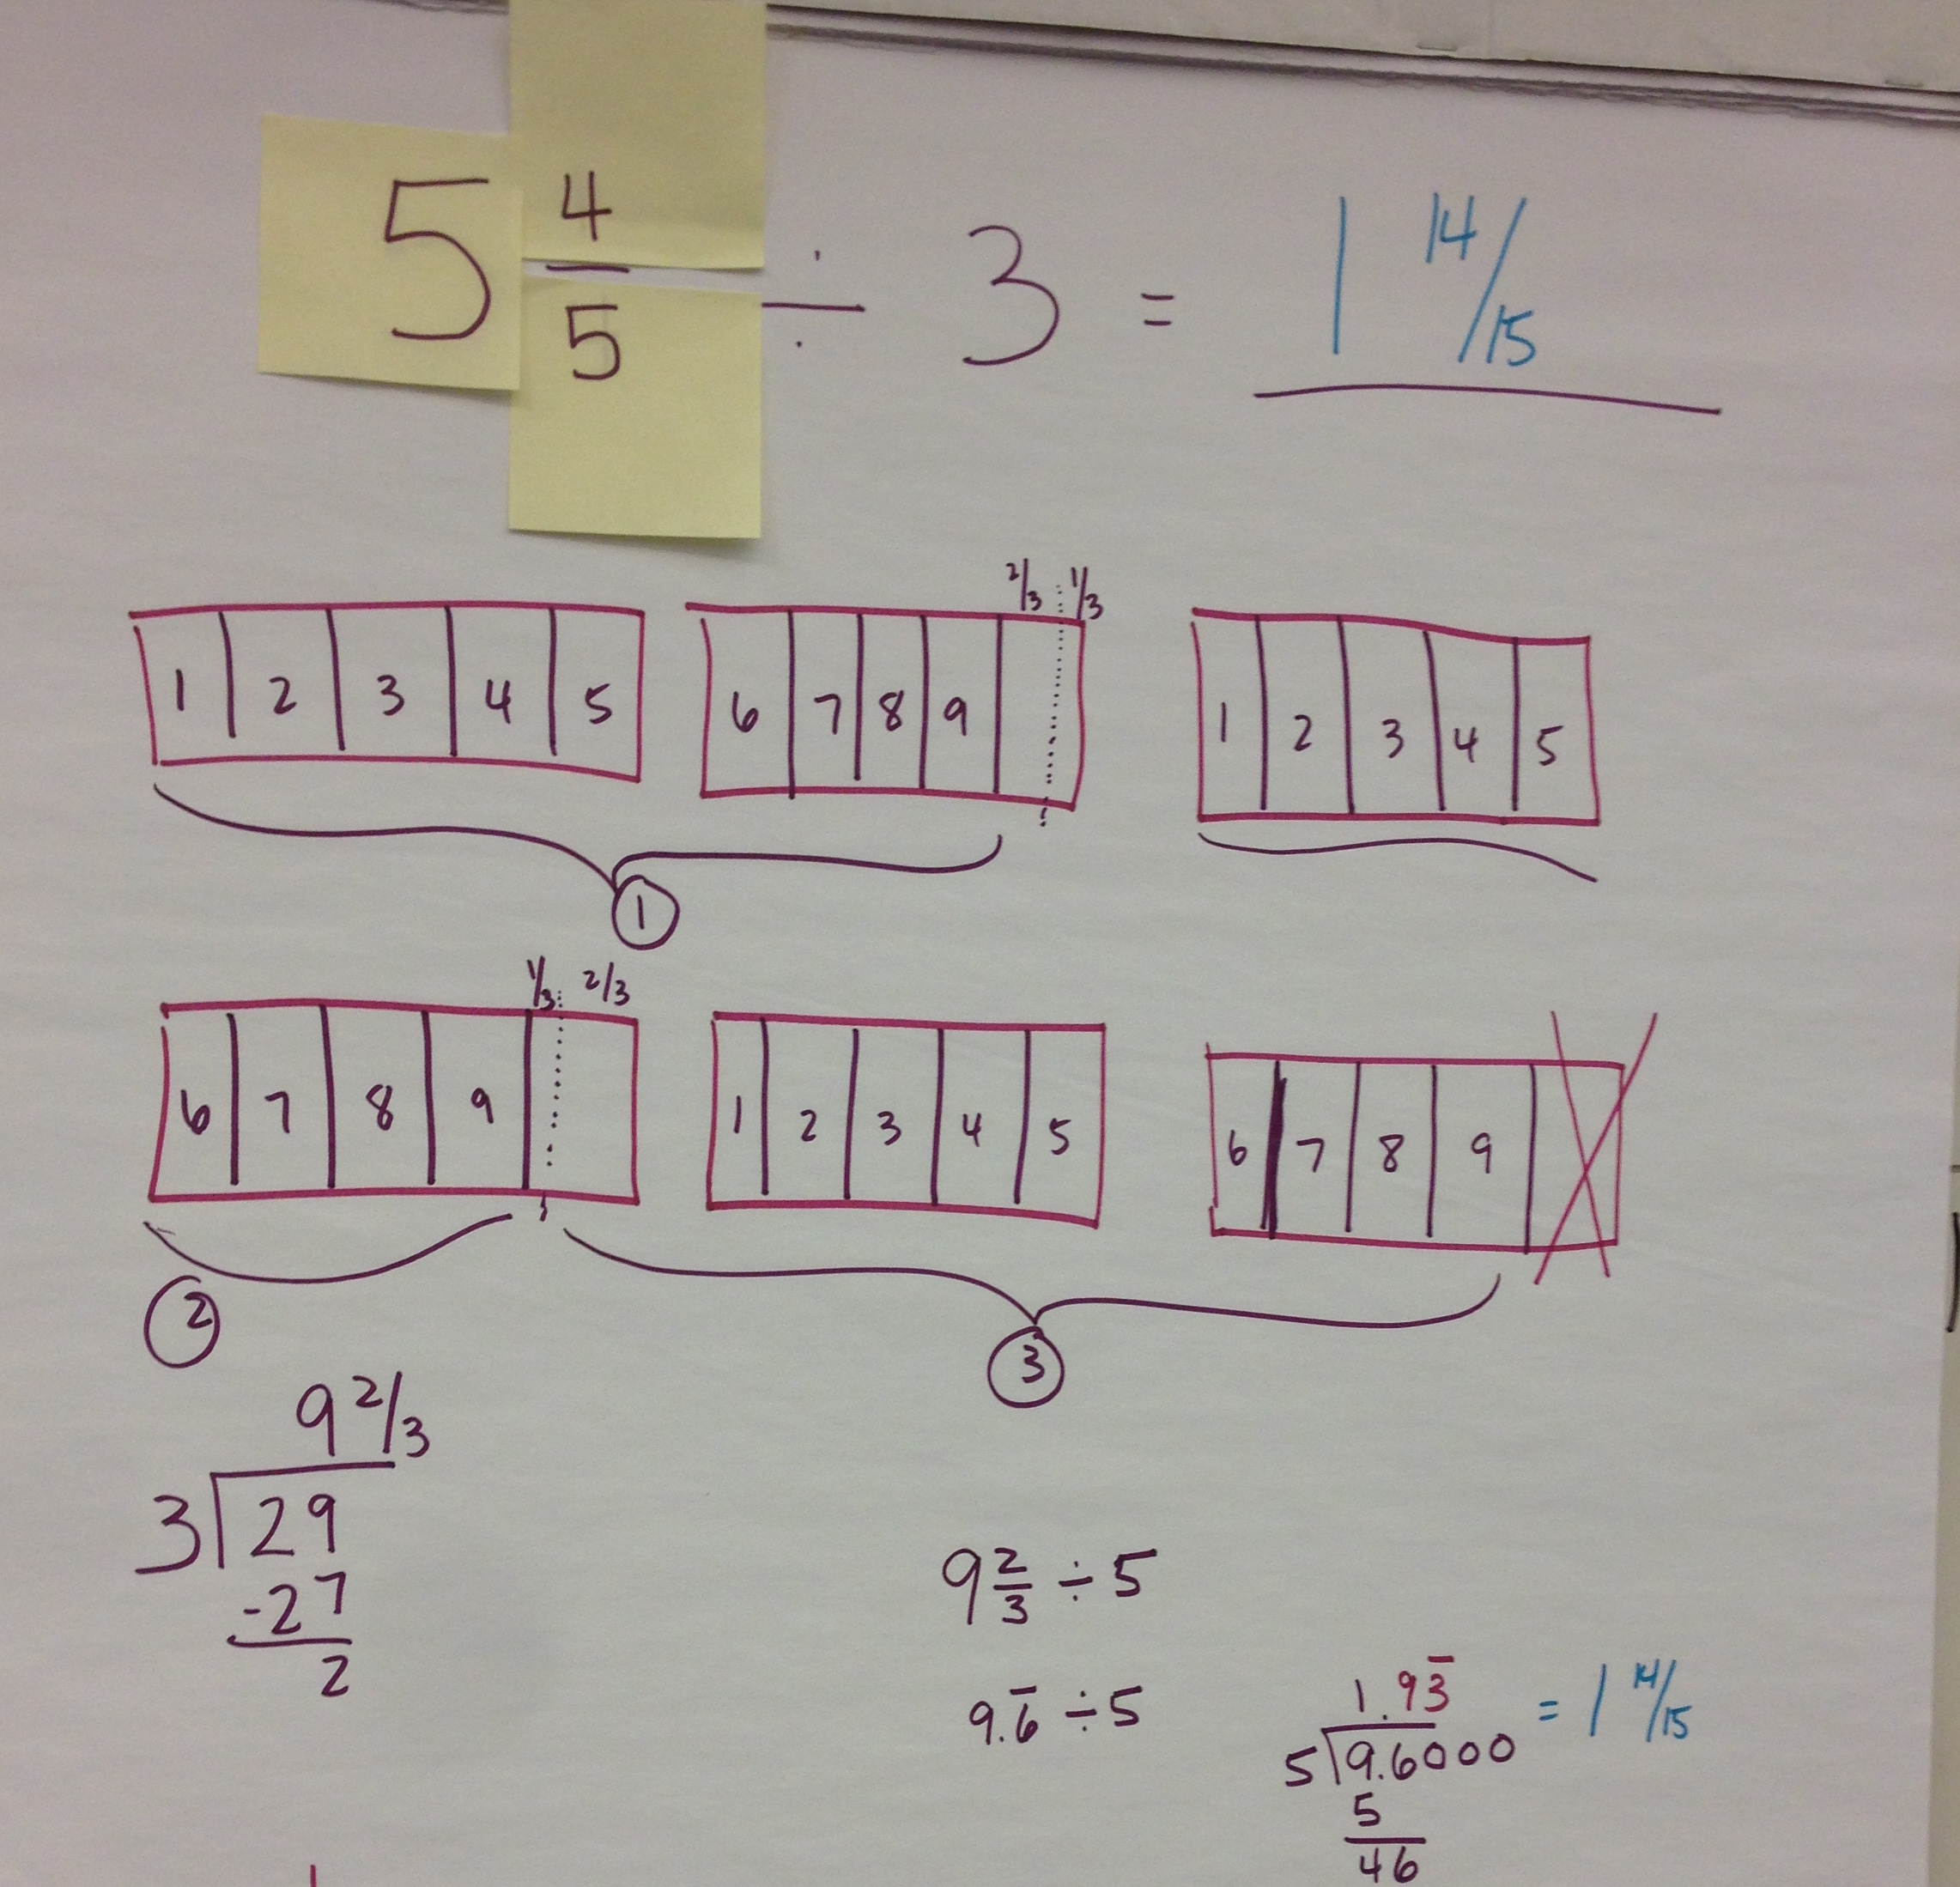 5 4/5 ÷ 3 = 1 14/15
2/3 1/3
1 2 3 4 5 6 7 8 9 1 2 3 4 5
1
1/3 2/3
6 7 8 9 1 2 3 4 5 6 7 8 9
2 3
9 2/3
3 29
-27
2
9 2/3 ÷ 5
9.6̅ ÷ 5
1.93̅ = 1 14/15
5 9.6000
5
46